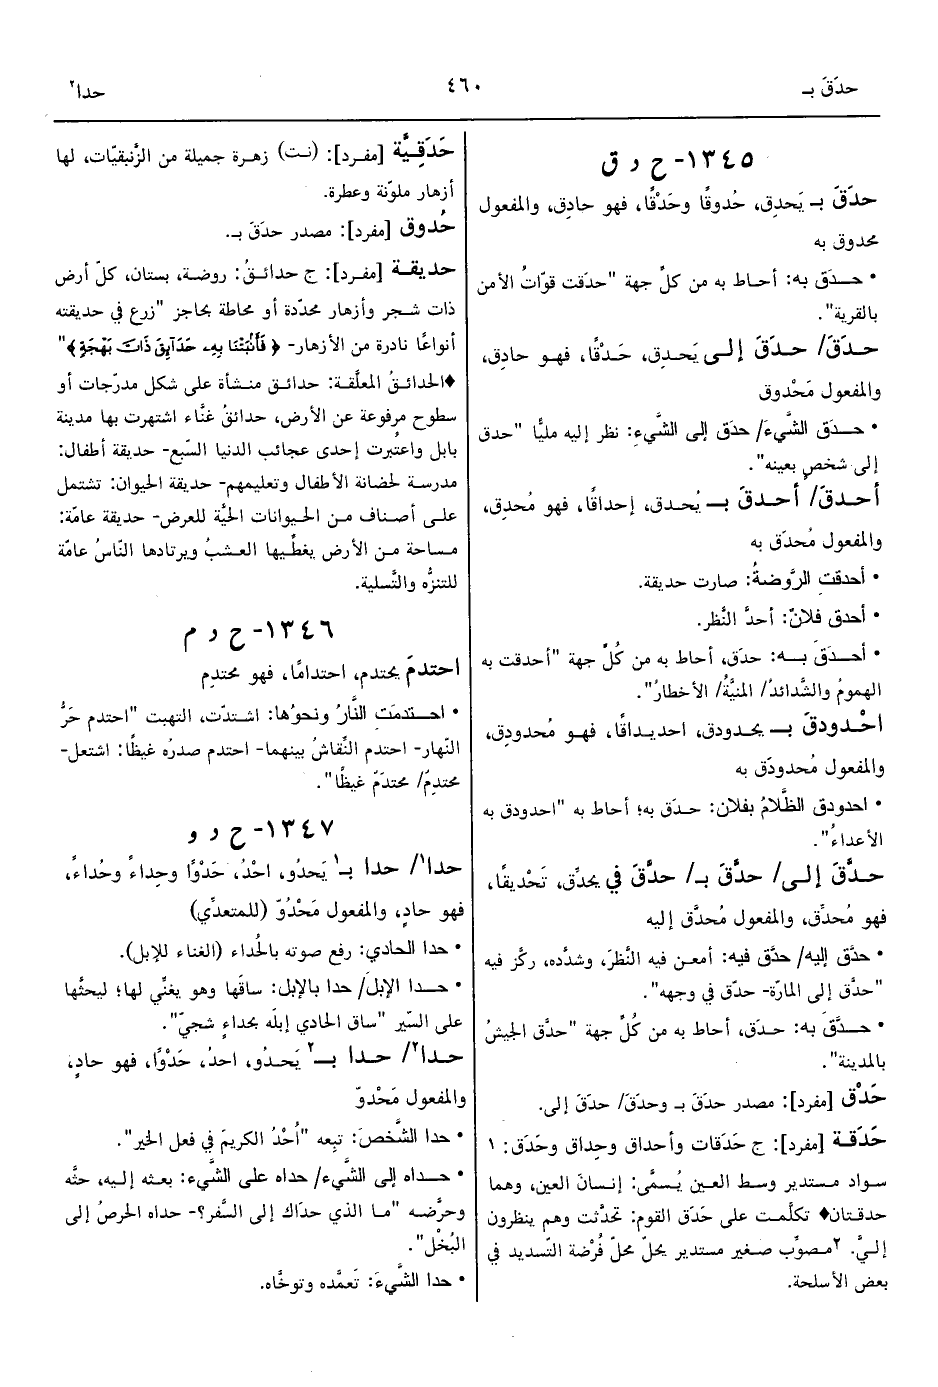 حدَقَ بـ
٤٦٠
حدا٢
١٣٤٥- ح د ق
حدَقَ بـ يَحدِق، حُدوقًا وحَدْقًا، فهو حادِق، والمفعول
محدوق به
• حـدَق به: أحـاط به من كلِّ جهة "حدَقت قوّاتُ الأمن
بالقرية".
حدَقَ/ حدَقَ إلى يَحدِق، حَدْقًا، فهـو حادِق،
والمفعول مَحْدوق
• حـدَق الشَّيءَ/ حدَق إلى الشَّيءِ: نظر إليه مليًّا "حدق
إلى شخصٍ بعينه".
أحدقَ/ أحدقَ بـ يُحـدق، إحداقًا، فهو مُحدِق،
والمفعول مُحدَق به
• أحدقتِ الرَّوضةُ: صارت حديقة.
• أحدق فلانٌ: أحدَّ النَّظر.
• أحـدَقَ بـه: حدَق، أحاط به من كُلِّ جهة "أحدقت به
الهمومُ والشَّدائدُ/ المنيَّةُ/ الأخطارُ".
احْدودقَ بـ يحدودق، احديـداقًا، فهـو مُحدودِق،
والمفعول مُحدودَق به
• احدودق الظَّلامُ بفلان: حـدَق به؛ أحاط به "احدودق به
الأعداءُ".
حدَّقَ إلى/ حدَّقَ بـ/ حدَّقَ في يحدِّق، تَحْديقًا،
فهو مُحدِّق، والمفعول مُحدَّق إليه
• حدَّق إليه/ حدَّق فيه: أمعن فيه النَّظرَ، وشدَّده، ركّز فيه
"حدَّق إلى المارّة- حدّق في وجهه".
• حـدَّقَ به: حـدَق، أحاط به من كُلِّ جهة "حدَّق الجيشُ
بالمدينة".
حَدْق [مفرد]: مصدر حدَقَ بـ وحدَقَ/ حدَقَ إلى.
حَدَقـة [مفرد]: ج حَدَقات وأحداق وحِداق وحَدَق: ١
سواد مستدير وسط العين يُسمَّى: إنسانَ العين، وهما
حدقتان♦ تكلَّمت على حَدَق القوم: تحدَّثت وهم ينظرون
إليَّ. ٢ مصوِّب صغير مستدير يحلّ محلّ فُرْضة التّسديد في
بعض الأسلحة.
حَدَقِـيَّة [مفرد]: (نت) زهرة جميلة من الزّنبقيّات، لها
أزهار ملوّنة وعطرة.
حُدُوق [مفرد]: مصدر حدَقَ بـ.
حديقـة [مفرد]: ج حدائقُ: روضة، بستان، كلّ أرض
ذات شجر وأزهار محدّدة أو محاطة بحاجز "زرع في حديقته
أنواعًا نادرة من الأزهار- ﴿ فَأَنۢبَتْنَا بِهِۦ حَدَآئِقَ ذَاتَ بَهْجَةٍ ﴾"
♦الحدائقُ المعلَّقة: حدائق منشأة على شكل مدرّجات أو
سطوح مرفوعة عن الأرض، حدائقُ غنَّاء اشتهرت بها مدينة
بابل واعتُبرت إحدى عجائب الدنيا السَّبع- حديقة أطفال:
مدرسة لحضانة الأطفال وتعليمهم- حديقة الحيوان: تشتمل
على أصناف من الحيوانات الحيَّة للعرض- حديقة عامّة:
مساحة من الأرض يغطِّيها العشبُ ويرتادها النّاسُ عامّة
للتنزُّه والتَّسلية.
١٣٤٦- ح د م
احتدمَ يحتدم، احتدامًا، فهو محتدِم
• احـتدمَتِ النَّارُ ونحوُها: اشتدّت، التهبت "احتدم حَرُّ
النَّهار- احتدم النِّقاشُ بينهما- احتدم صدرُه غيظًا: اشتعل-
محتدِمٌ/ محتدَمٌ غيظًا".
١٣٤٧- ح د و
حدا١/ حدا بـ١ يَحدُو، احْدُ، حَدْوًا وحِداءً وحُداءً،
فهو حادٍ، والمفعول مَحْدُوّ (للمتعدِّي)
• حدا الحادي: رفع صوته بالحُداء (الغناء للإبل).
• حـدا الإبلَ/ حدا بالإبل: ساقَها وهو يغنِّي لها؛ ليحثَّها
على السَّير "ساق الحادي إبلَه بحداءٍ شجيّ".
حدا٢/ حدا بـ٢ يَحدُو، احدُ، حَدْوًا، فهو حادٍ،
والمفعول مَحْدوّ
• حدا الشَّخصَ: تبِعه "أُحْدُ الكريمَ في فعل الخير".
• حـداه إلى الشَّيءِ/ حداه على الشَّيءِ: بعثه إليه، حثَّه
وحرَّضه "ما الذي حدَاك إلى السَّفر؟- حداه الحرصُ إلى
البُخْل".
• حدا الشَّيءَ: تَعمَّده وتوخَّاه.